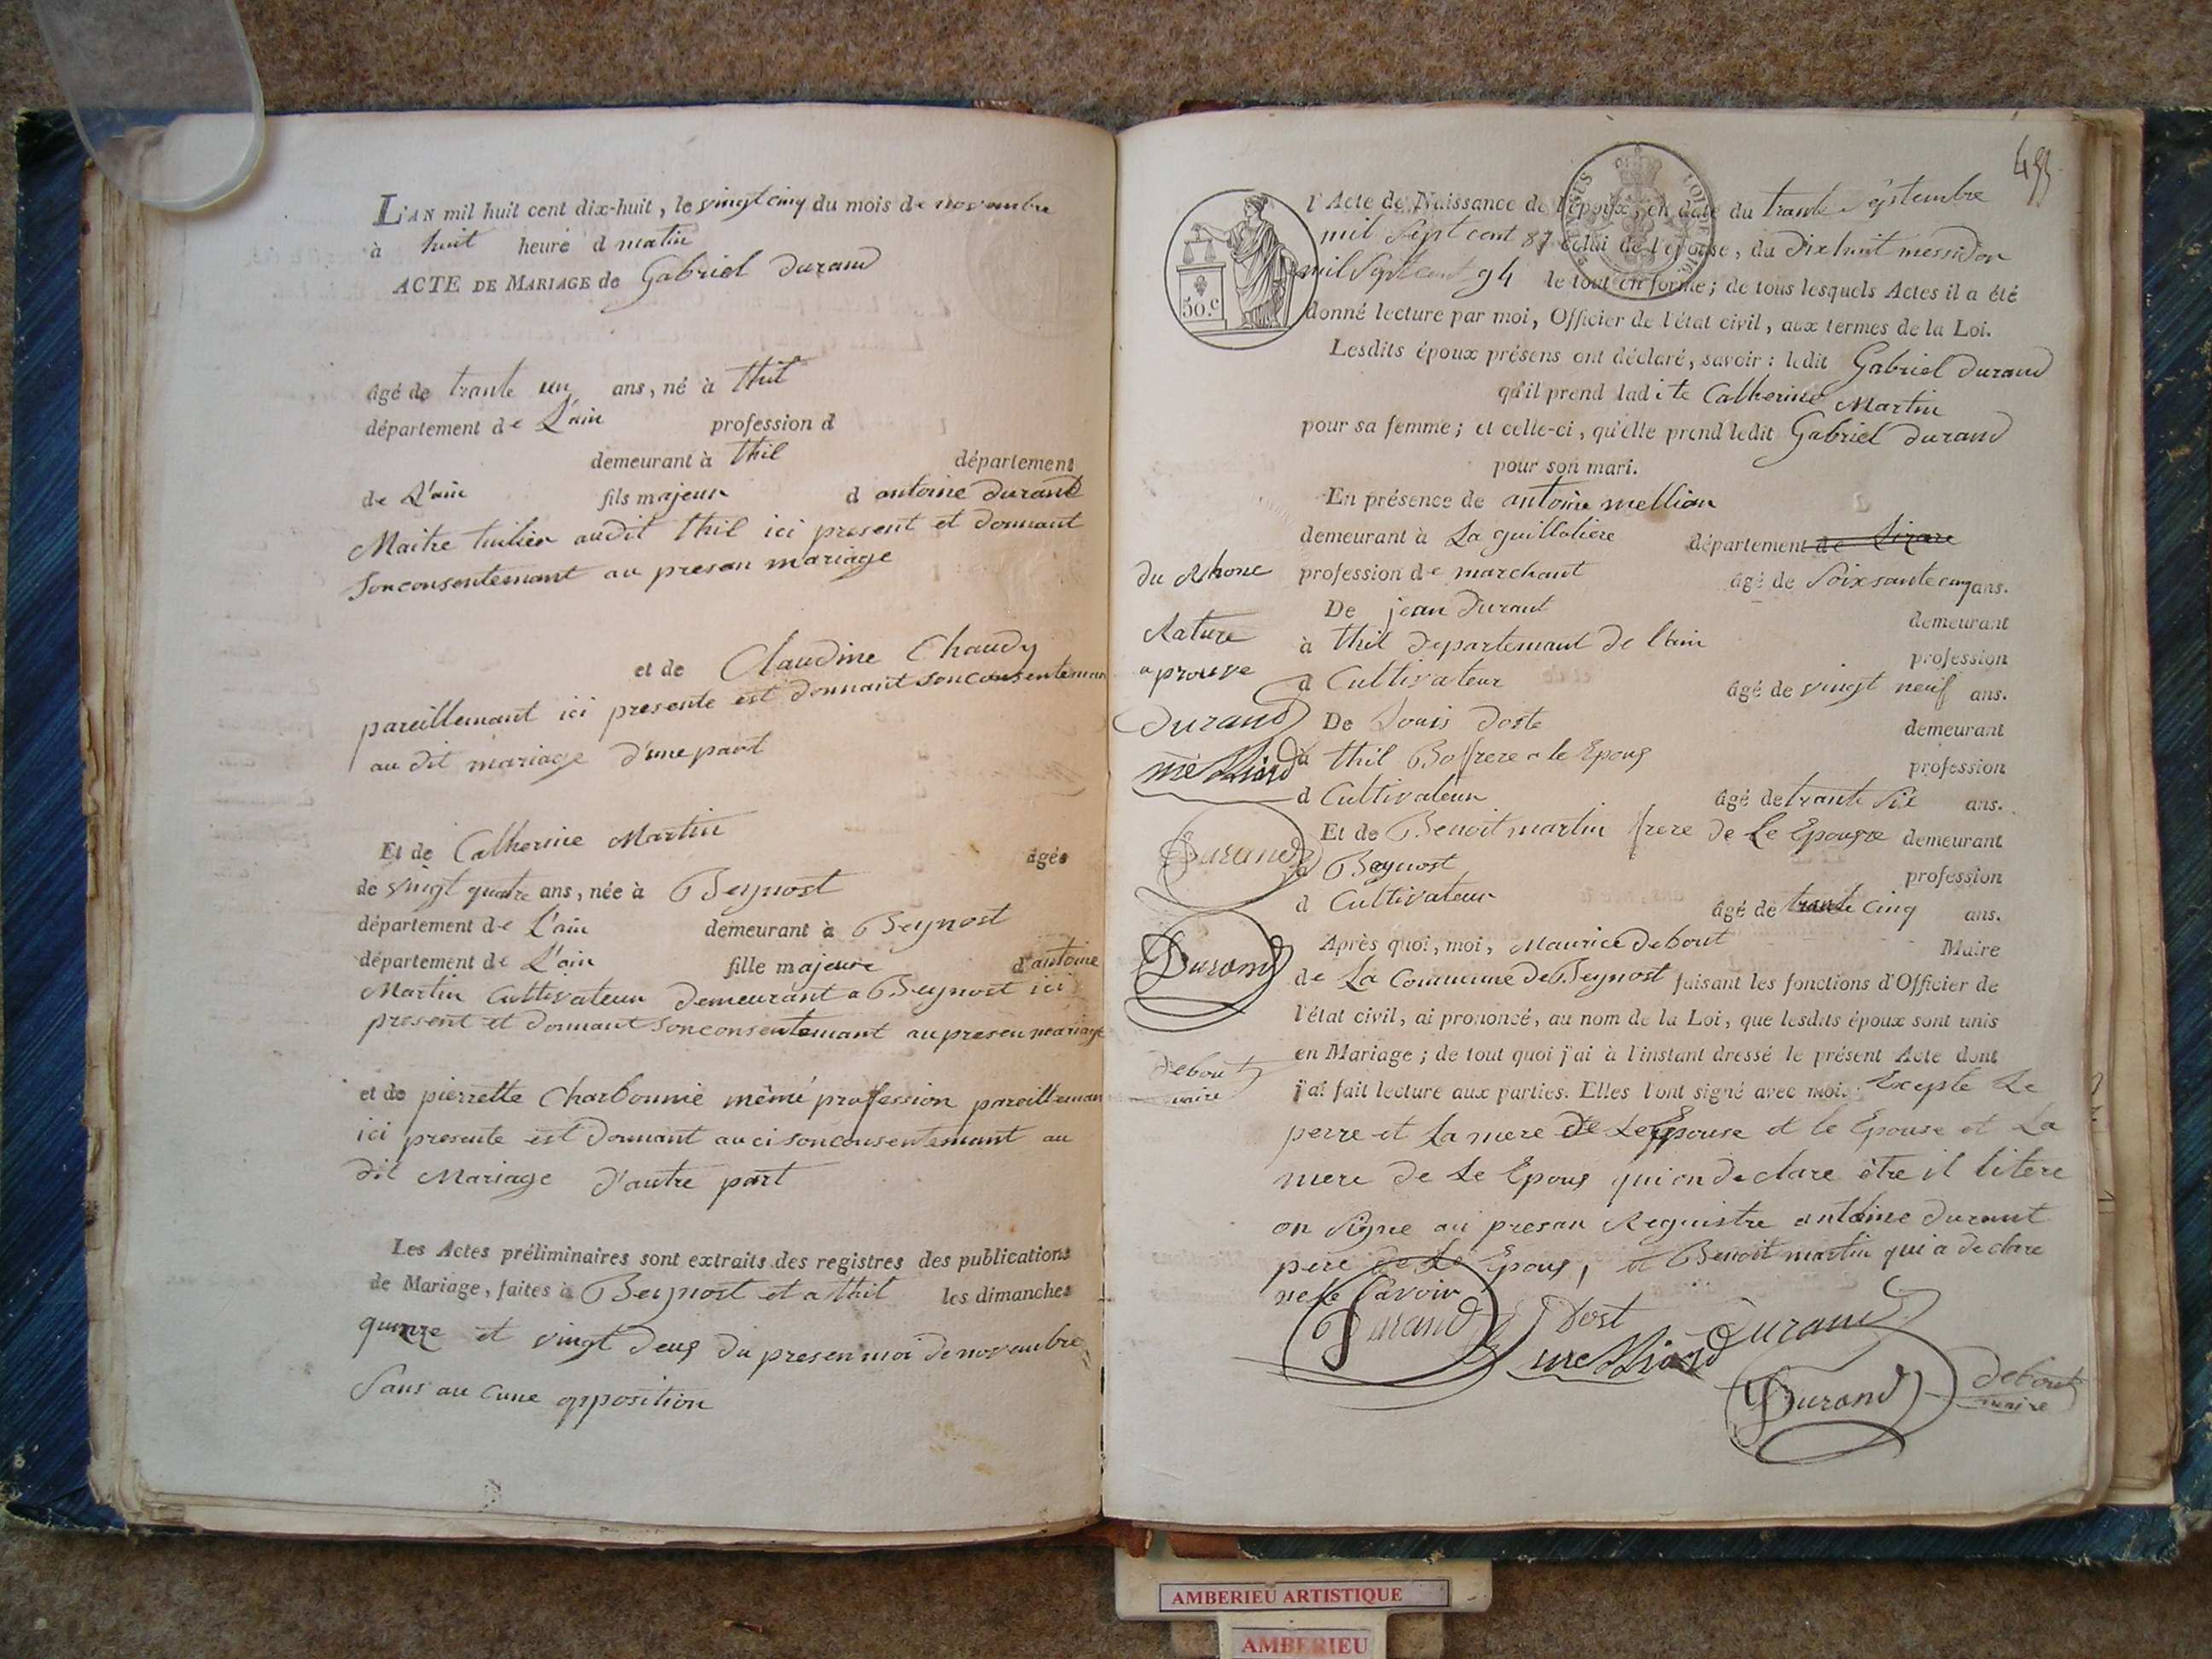 L'AN mil huit cent dix-huit, le vingt cinq du mois de novembre
à huit heure d matin
ACTE DE MARIAGE de Gabriel durand
âgé de trante un ans, né à thil
département de L'ain profession d
demeurant à thil département
de L'ain fils majeur d antoine durand
Maitre tuilier audit thil ici present et donnant
sonconsentemant au presan mariage
et de Claudine Chaudy
pareillemant ici presente est donnant sonconsenteman
au dit mariage d'une part
Et de Catherine Martin âgée
de vingt quatre ans, née à Beynost
département de L'ain demeurant à Beynost
département de L'ain fille majeure d'antoine
Martin Cultivateur demeurant a Beynost ici
present et donnant sonconsentemant au presen mariage
et de pierrette Charbonnié mêmé profession pareilleman
ici presente est donnant auci sonconsentemant au
dit Mariage d'autre part
Les Actes préliminaires sont extraits des registres des publications
de Mariage, faites à Beynost et a thil les dimanches
quinze et vingt deux du presen moi de novembre
Sans au cune opposition
l'Acte de Naissance de l'époux, en date du trante septembre
mil sept cent 87 celui de l'épouse, du dixhuit messidor
mil Sept cent 94 le tout en forme; de tous lesquels Actes il a été
50.c donné lecture par moi, Officier de l'état civil, aux termes de la Loi.
Lesdits époux présens ont déclaré, savoir: ledit Gabriel durand
qu'il prend ladite Catherine Martin
pour sa femme; et celle-ci, qu'elle prend ledit Gabriel durand
pour son mari.
En présence de antoine mellian
demeurant à La guillotiere département de Lizare
du Rhone profession de marchant âgé de Soixsante cinq ans.
De jean durand demeurant
Rature
à thil departemant de l'ain profession
aprouve
d Cultivateur âgé de vingt neuf ans.
durand
De Louis doste demeurant
melliand
à thil Boffrere a le Epoux profession
d Cultivateur âgé de trante six ans.
Et de Benoit martin frere de Le Epouse demeurant
Durand
à Beynost profession
d Cultivateur âgé de trante cinq ans.
Durand
Après quoi, moi, Maurice debout Maire
de La Commune de Beynost faisant les fonctions d'Officier de
l'état civil, ai prononcé, au nom de la Loi, que lesdits époux sont unis
en Mariage; de tout quoi j'ai à l'instant dressé le présent Acte dont
debout
maire
j'ai fait lecture aux parties. Elles l'ont signé avec moi. Excepte Le
perre et La mere de Le Epouse et le Epouse et La
mere de Le Epoux qui on declare être il litere
on signe au presan Reguistre antoine durant
pere de Le Epoux, et Benoit martin qui a declare
ne le Savoir
Durand Dost Durand
melliand
Durand debout
maire
AMBERIEU ARTISTIQUE
AMBERIEU